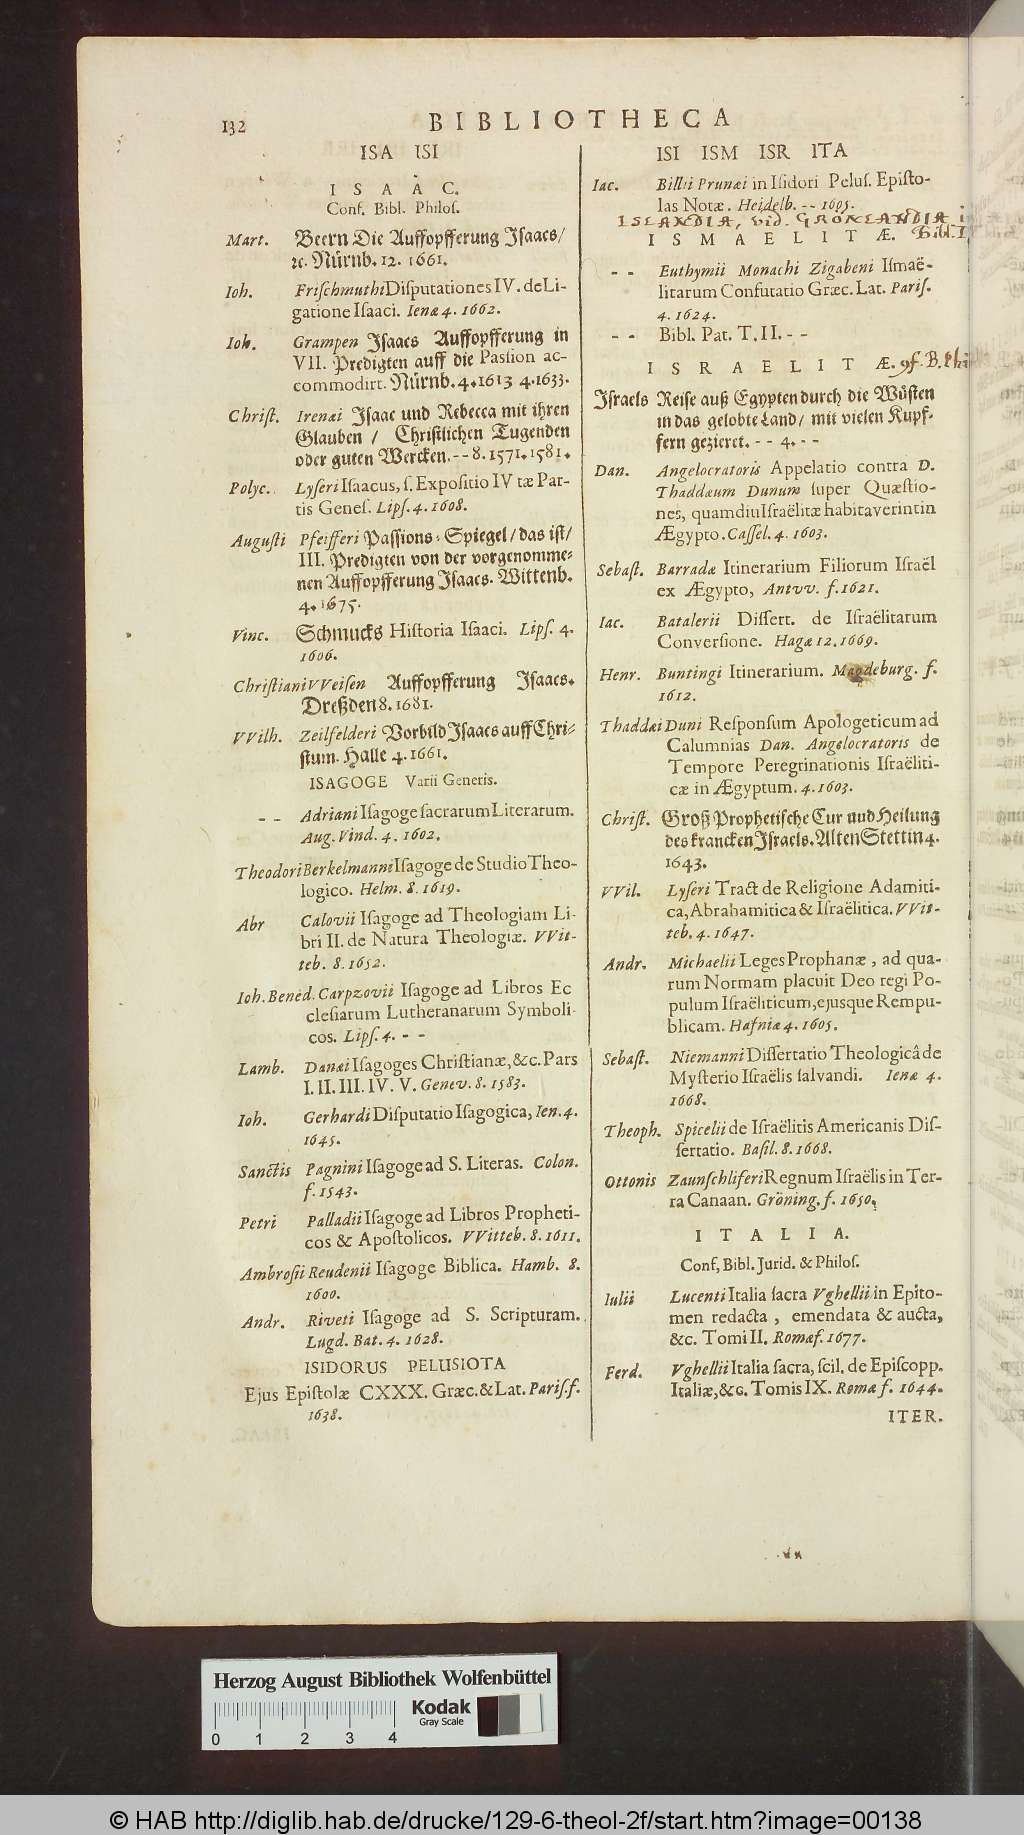 132
BIBLIOTHECA
ISA ISI
ISAAC.
Conf. Bibl. Philoſ.
Mart. Beern Die Auffopfferung Iſaacs/
ꝛc. Nürnb. 12. 1661.
Ioh. Friſchmuthi Diſputationes IV. de Li-
gatione Iſaaci. Ienæ 4. 1662.
Ioh. Grampen Iſaacs Auffopfferung in
VII. Predigten auff die Paſſion ac-
commodirt. Nürnb. 4. 1613 4. 1633.
Chriſt. Irenæi Iſaac und Rebecca mit ihren
Glauben / Chriſtlichen Tugenden
oder guten Wercken. -- 8. 1571. 1581.
Polyc. Lyſeri Iſaacus, ſ. Expoſitio IV tæ Par-
tis Geneſ. Lipſ. 4. 1608.
Auguſti Pfeifferi Paſſions-Spiegel/ das iſt/
III. Predigten von der vorgenomme-
nen Auffopfferung Iſaacs. Wittenb.
4. 1675.
Vinc. Schmucks Hiſtoria Iſaaci. Lipſ. 4.
1606.
Chriſtiani VVeiſen Auffopfferung Iſaacs.
Dreßden 8. 1681.
VVilh. Zeilfelderi Vorbild Iſaacs auff Chri-
ſtum. Halle 4. 1661.
ISAGOGE Varii Generis.
-- Adriani Iſagoge ſacrarum Literarum.
Aug. Vind. 4. 1602.
Theodori Berkelmanni Iſagoge de Studio Theo-
logico. Helm. 8. 1619.
Abr Calovii Iſagoge ad Theologiam Li-
bri II. de Natura Theologiæ. VVit-
teb. 8. 1652.
Ioh. Bened. Carpzovii Iſagoge ad Libros Ec
cleſiarum Lutheranarum Symboli-
cos. Lipſ. 4. --
Lamb. Danæi Iſagoges Chriſtianæ, &c. Pars
I. II. III. IV. V. Genev. 8. 1583.
Ioh. Gerhardi Diſputatio Iſagogica, Ien. 4.
1645.
Sanctis Pagnini Iſagoge ad S. Literas. Colon.
f. 1543.
Petri Palladii Iſagoge ad Libros Propheti-
cos & Apoſtolicos. VVitteb. 8. 1611.
Ambroſii Reudenii Iſagoge Biblica. Hamb. 8.
1600.
Andr. Riveti Iſagoge ad S. Scripturam.
Lugd. Bat. 4. 1628.
ISIDORUS PELUSIOTA
Ejus Epiſtolæ CXXX. Græc. & Lat. Pariſ. f.
1638.
ISI ISM ISR ITA
Iac. Billii Prunæi in Iſidori Peluſ. Epiſto-
las Notæ. Heidelb. -- 1605.
ISLANDIA, vid. GRONLANDIA
ISMAELITÆ.
-- Euthymii Monachi Zigabeni Iſmaë-
litarum Confutatio Græc. Lat. Pariſ.
4. 1624.
-- Bibl. Pat. T. II. --
ISRAELITÆ.
Iſraels Reiſe auß Egypten durch die Wüſten
in das gelobte Land/ mit vielen Kupf-
fern gezieret. -- 4. --
Dan. Angelocratoris Appelatio contra D.
Thaddæum Dunum ſuper Quæſtio-
nes, quamdiu Iſraëlitæ habitaverint in
Ægypto. Caſſel. 4. 1603.
Sebaſt. Barradæ Itinerarium Filiorum Iſraël
ex Ægypto, Antvv. f. 1621.
Iac. Batalerii Diſſert. de Iſraëlitarum
Converſione. Hagæ 12. 1669.
Henr. Buntingi Itinerarium. Magdeburg. f.
1612.
Thaddæi Duni Reſponſum Apologeticum ad
Calumnias Dan. Angelocratoris de
Tempore Peregrinationis Iſraëliti-
cæ in Ægyptum. 4. 1603.
Chriſt. Groß Prophetiſche Cur und Heilung
des krancken Iſraels. Alten Stettin 4.
1643.
VVil. Lyſeri Tract de Religione Adamiti-
ca, Abrahamitica & Iſraëlitica. VVit-
teb. 4. 1647.
Andr. Michaelii Leges Prophanæ, ad qua-
rum Normam placuit Deo regi Po-
pulum Iſraëliticum, ejusque Rempu-
blicam. Hafniæ 4. 1605.
Sebaſt. Niemanni Diſſertatio Theologicâ de
Myſterio Iſraëlis ſalvandi. Ienæ 4.
1668.
Theoph. Spicelii de Iſraëlitis Americanis Diſ-
ſertatio. Baſil. 8. 1668.
Ottonis Zaunſchliferi Regnum Iſraëlis in Ter-
ra Canaan. Gröning. f. 1650.
ITALIA.
Conf, Bibl. Jurid. & Philoſ.
Iulii Lucenti Italia ſacra Vghellii in Epito-
men redacta, emendata & aucta,
&c. Tomi II. Romæ f. 1677.
Ferd. Vghellii Italia ſacra, ſcil. de Epiſcopp.
Italiæ, &c. Tomis IX. Romæ f. 1644.
ITER.
Herzog August Bibliothek Wolfenbüttel
Kodak
Gray Scale
0 1 2 3 4
© HAB http://diglib.hab.de/drucke/129-6-theol-2f/start.htm?image=00138